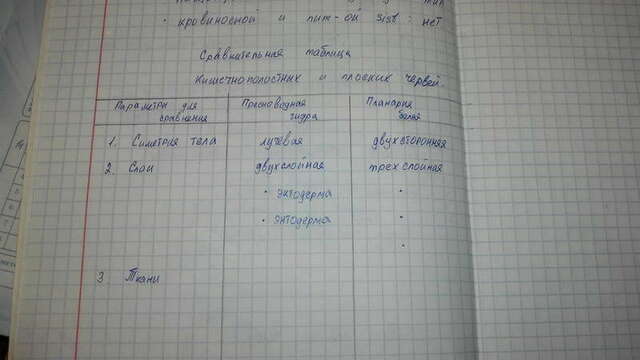 кровиносной и пит-ой sist: нет
Сравнительная таблица
Кишечнополостных и плоских червей.
Параметры для сравнения Пресноводная гидра Планария белая
1. Симетрия тела лучевая двухсторонняя
2. Слои двухслойная трехслойная
• эктодерма •
• энтодерма •
•
3 Ткани